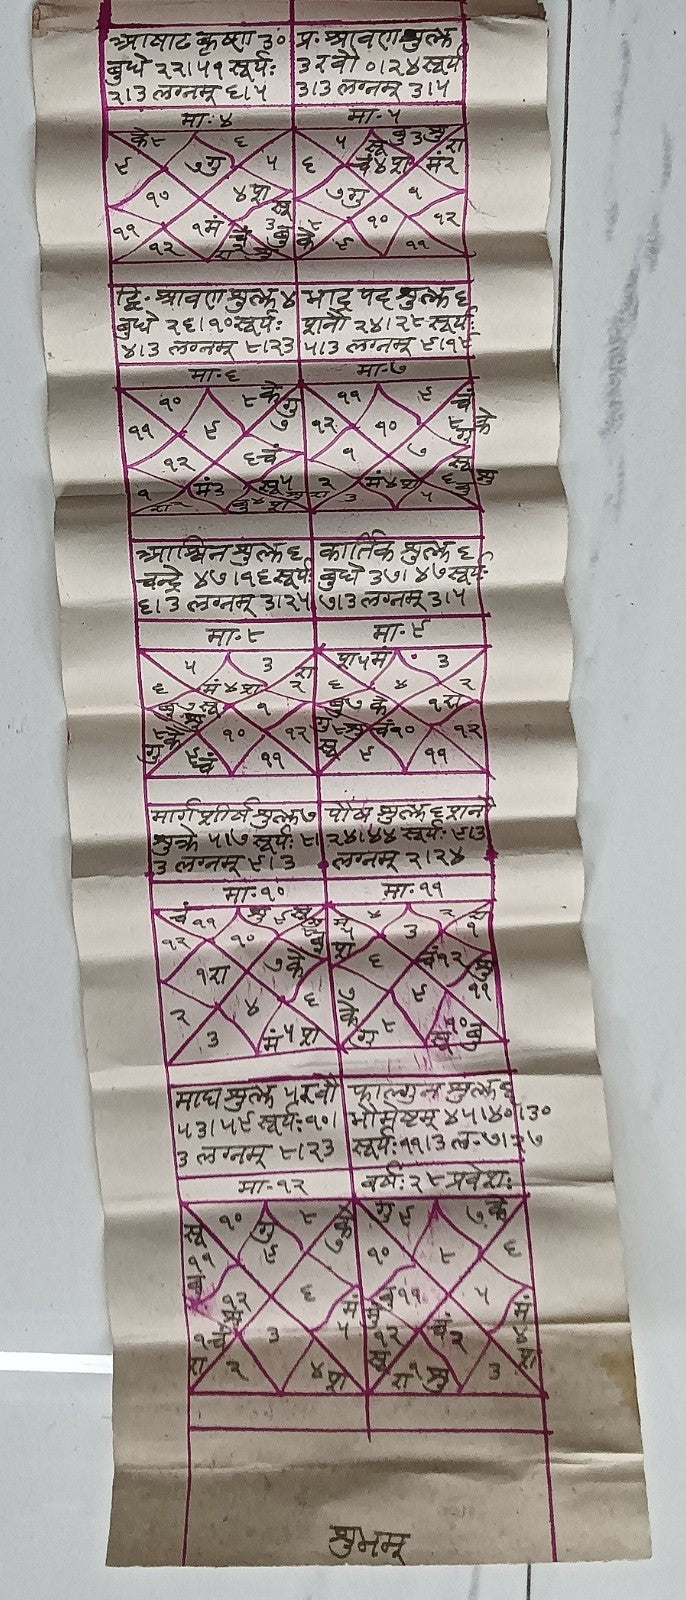 आषाढ कृष्ण ३०
बुधे २२।५१ सूर्यः
२।३ लग्नम् ६।५
प्र. श्रावण शुक्ल
३ रवौ ०।२४ सूर्य
३।३ लग्नम् ३।५
मा. ४
के ८
६
९
७ गु
५
१०
४ श
सू
११
१ मं
१२
मा. ५
५
सू
बु ३ शु
रा
६
चं ४ श
मं २
७ गु
१
८
के
१०
१२
९
११
द्वि. श्रावण शुक्ल ४
बुधे २६।१० सूर्यः
४।३ लग्नम् ८।२३
भाद्र पद शुक्ल ६
शनौ २४।२८ सूर्यः
५।३ लग्नम् ९।१८
मा. ६
१०
८
के
गु
११
९
७
१२
६ चं
१
मं ३
सू ५
रा २
बु ४ श
मा. ७
११
९
चं
८
के
गु
१२
१०
१
७
सू
६
शु
बु
२
मं ४ श
३
५
आश्विन शुक्ल ६
चन्द्रे ४७।१६ सूर्यः
६।३ लग्नम् ३।२५
कार्तिक शुक्ल ६
बुधे ३७।४७ सूर्यः
७।३ लग्नम् ३।५
मा. ८
५
३
रा
६
मं ४ श
२
बु ७ सू
शु
१
८ के
गु
१०
१२
९
चं
११
मा. ९
श ५ मं
३
६
४
२
बु ७ के
१ रा
गु
८ शु
सू
चं १०
१२
९
११
मार्गशीर्ष शुक्ल ७
शुक्रे ५।७ सूर्यः ८।
३ लग्नम् ९।३
पौष शुक्ल ६ शनौ
२४।४४ सूर्यः ९।३
लग्नम् २।२४
मा. १०
चं ११
शु ९
१२
१०
१ रा
७ के
२
४
६
३
मं ५ श
मा. ११
मं
५
श
४
२
रा
१
३
६
चं १२
शु
११
७
के
९
गु ८
सू
१०
बु
माघ शुक्ल ५ रवौ
५३।५९ सूर्यः १०।
३ लग्नम् ८।२३
फाल्गुन शुक्ल ६
भौमेष्टम् ४५।४०।३०
सूर्यः ११।३ ल. ७।२७
मा. १२
वर्षः २८ प्रवेशः
सू
११
बु
१०
गु
८
के
७
९
१२
शु
६
१
चं
रा
३
मं
५
२
४ श
गु ९
७ के
१०
८
६
बु ११
५
१२
सू
चं २
मं
४
श
रा १ शु
३
शुभम्